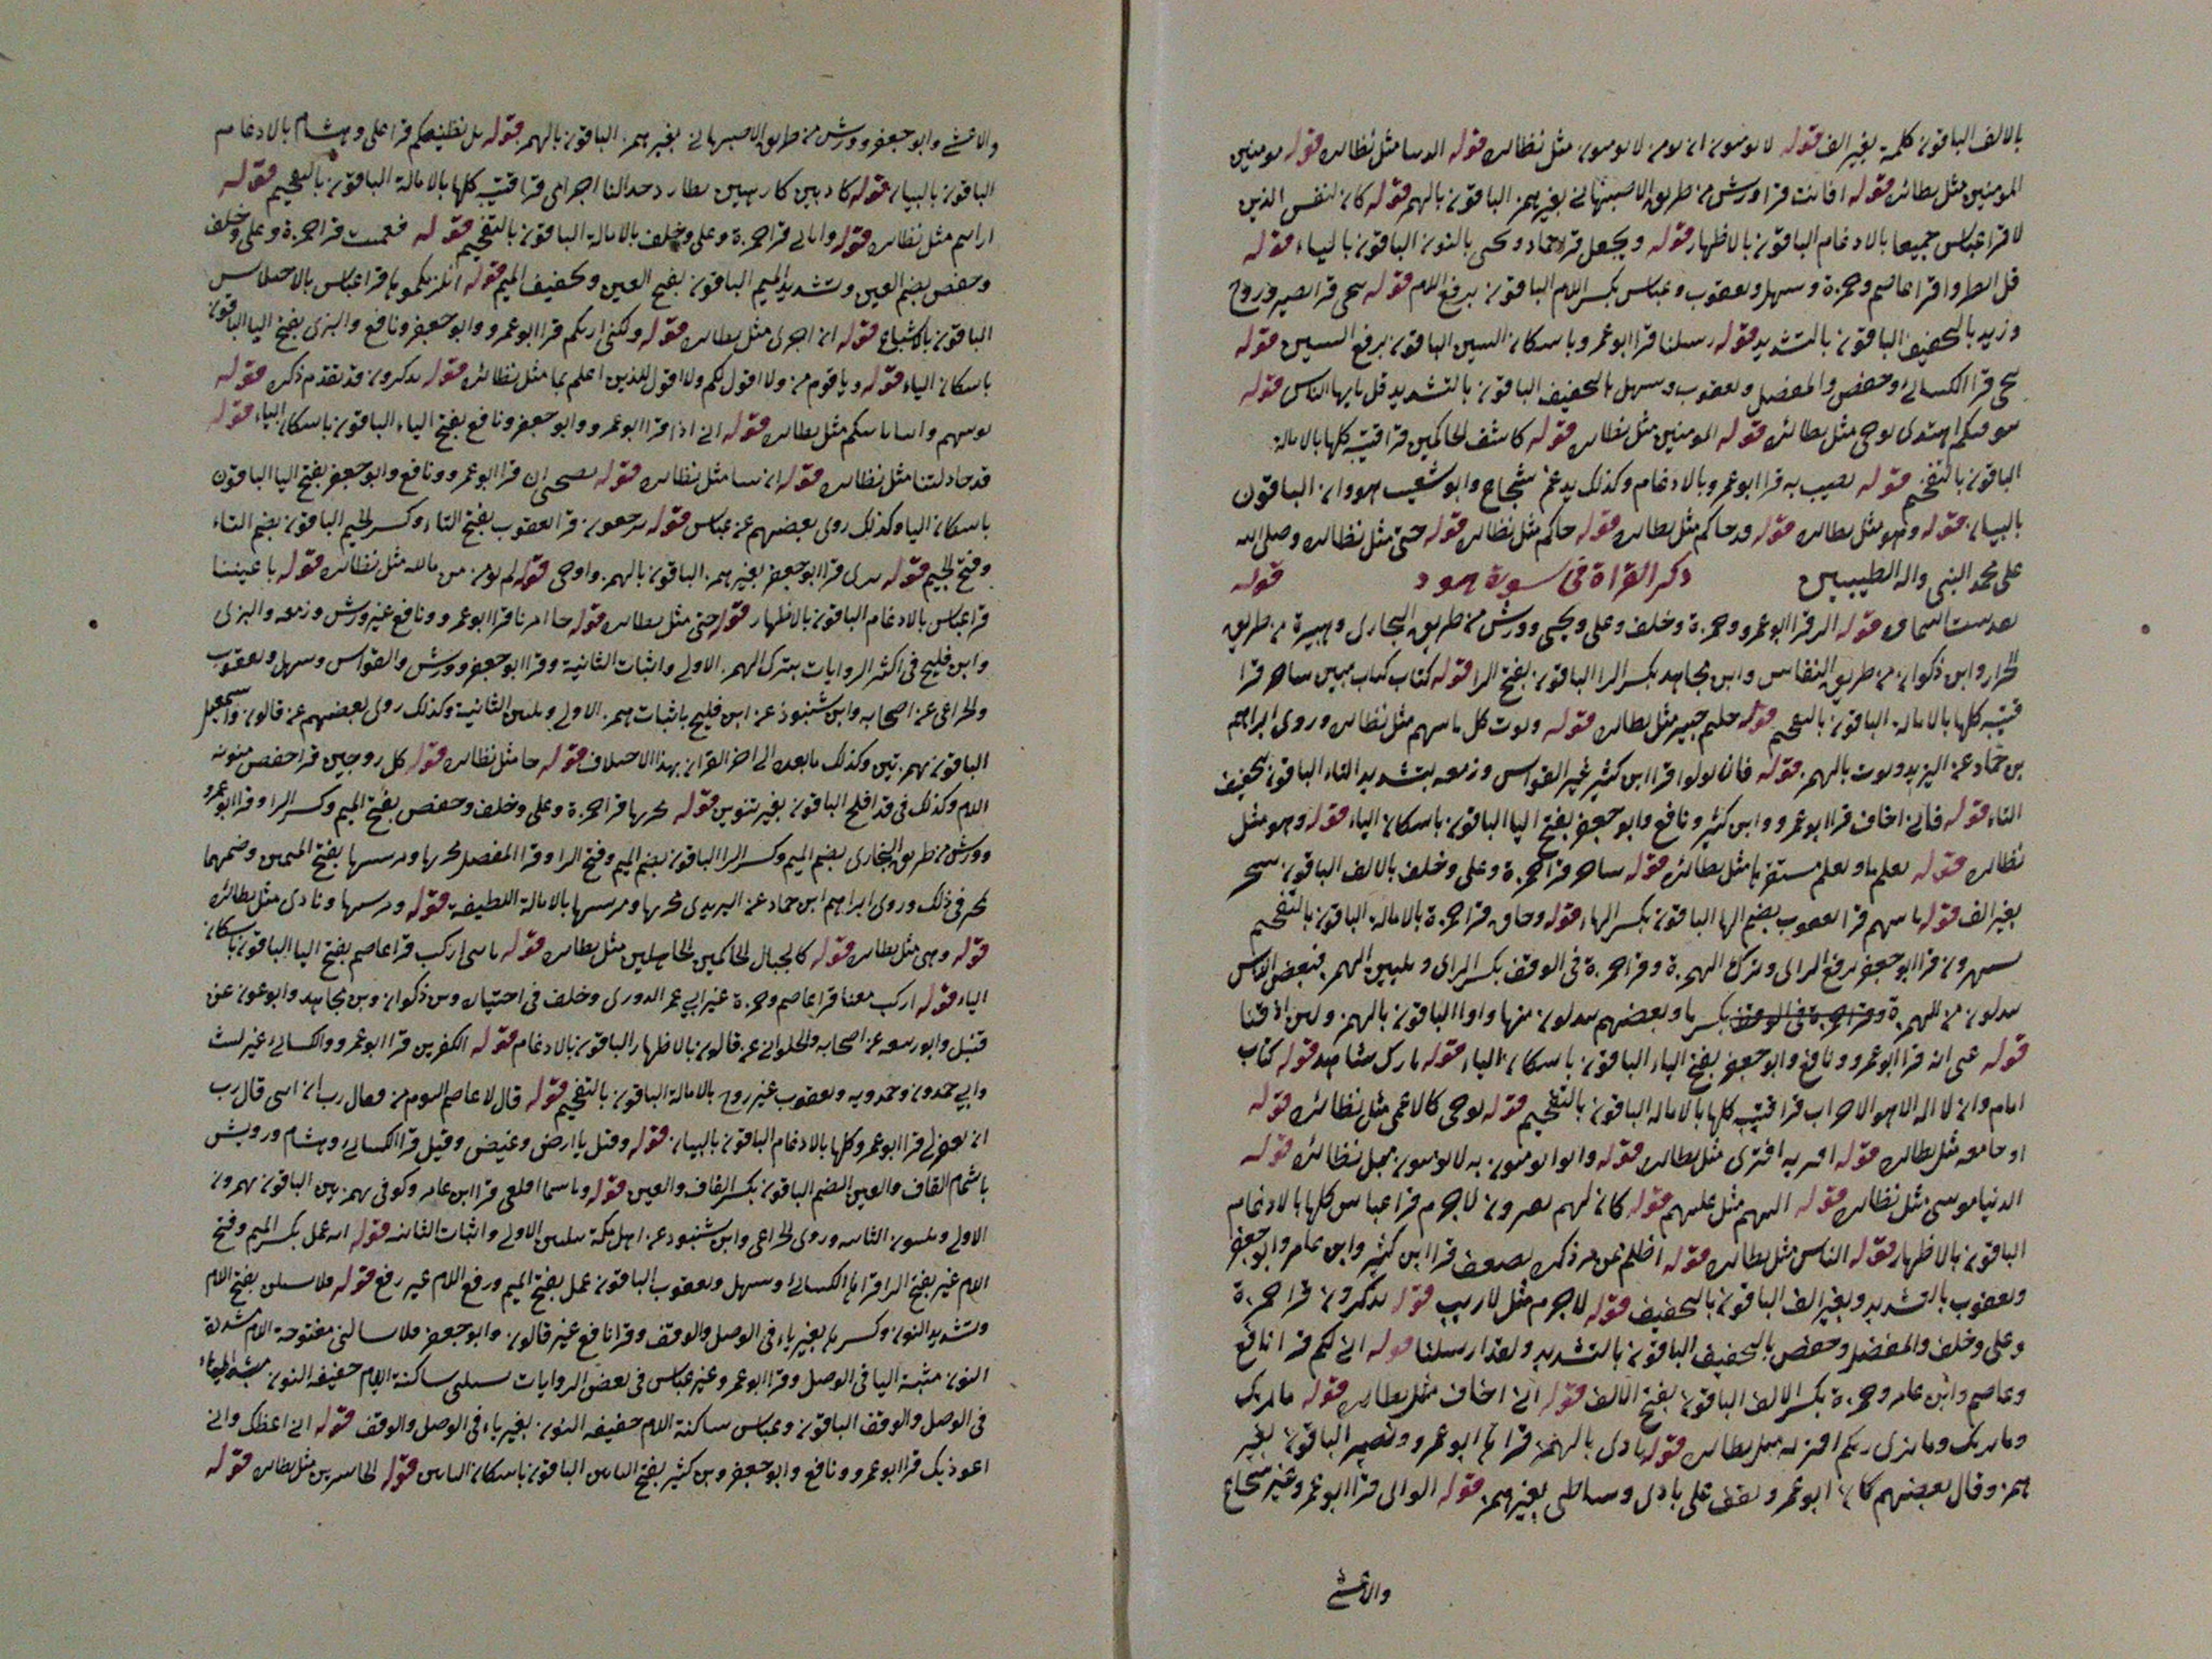 بالالف الباقون كلمة بغير الف قوله لا يومنون ان نومن لا يومنون مثل نظائره قوله الدنيا مثل نظائره قوله مومنين
المومنين مثل نظائره قوله افانت قرا ورش من طريق الاصبهاني بغير همز الباقون بالهمز قوله كان لنفس الذين
لا قرا عباس جميعا بالادغام الباقون بالاظهار قوله ويجعل قرا حماد ويحيى بالنون الباقون بالياء قوله
قل انظروا قرا عاصم وحمزة وسهل ويعقوب وعباس بكسر اللام الباقون برفع اللام قوله ننجي قرا نصير وروح
وزيد بالتخفيف الباقون بالتشديد قوله رسلنا قرا ابو عمرو باسكان السين الباقون برفع السين قوله
ننجي قرا الكسائي وحفص والمفضل ويعقوب وسهل بالتخفيف الباقون بالتشديد قل يايها الناس قوله
يتوفيكم اهتدى يوحى مثل نظائره قوله المومنين مثل نظائره قوله كاشف الحاكمين قرا قتيبة كلها بالامالة
الباقون بالتفخيم قوله نصيب به قرا ابو عمرو بالادغام وكذلك يدغم شجاع وابو شعيب هو وان الباقون
بالبيان قوله وهو مثل نظائره قوله قد جاكم مثل نظائره قوله جاكم مثل نظائره قوله حتى مثل نظائره وصلى الله
على محمد النبي واله الطيبين ذكر القراة في سورة هود قوله
قوله الر قرا ابو عمرو وحمزة وخلف وعلي ويحيى وورش من طريق البخاري وهبيرة من طريق
الخزاز وابن ذكوان من طريق النقاش وابن مجاهد بكسر الرا الباقون بفتح الرا قوله كتاب كتاب مبين ساحر قرا
قتيبة كلها بالامالة الباقون بالتفخيم قوله حكيم خبير مثل نظائره قوله ويوت كل ما منهم مثل نظائره وروى ابراهيم
بن حماد عن اليزيدي ويوت بالهمز قوله فان تولوا قرا ابن كثير غير القواس وزمعه بتشديد التاء الباقون بتخفيف
التاء قوله فاني اخاف قرا ابو عمرو وابن كثير ونافع وابو جعفر بفتح اليا الباقون باسكان الياء قوله وهو مثل
نظائره قوله يعلم ما ويعلم مستقرها مثل نظائره قوله ساحر قرا حمزة وعلي وخلف بالالف الباقون سحر
بغير الف قوله ياتيهم قرا يعقوب بضم الها الباقون بكسر الهاء قوله وحاق قرا حمزة بالامالة الباقون بالتفخيم
يستهزون قرا ابو جعفر برفع الزاى وترك الهمزة وقرا حمزة في الوقف بكسر الزاى وتليين الهمز فبعض الناس
يبدلون من الهمزة بكسر يا وبعضهم يبدلون منها واوا الباقون بالهمز ولئن اذقنا
قوله عني انه قرا ابو عمرو ونافع وابو جعفر بفتح الياء الباقون باسكان الياء قوله تارك شاهد قوله كتاب
امام وان لا اله الا هو الاحزاب قرا قتيبة كلها بالامالة الباقون بالتفخيم قوله يوحى كالاعمى مثل نظائره قوله
او جا معه مثل نظائره قوله افتريه افترى مثل نظائره قوله والو يومنون به لا يومنون مثل نظائره قوله
الدنيا موسى مثل نظائره قوله اليهم مثل عليهم قوله كان لهم يصرون لا جرم قرا عباس كلها بالادغام
الباقون بالاظهار قوله الناس مثل نظائره قوله اظلم ممن ذكر يضعف قرا ابن كثير وابن عامر وابو جعفر
ويعقوب بالتشديد وبغير الف الباقون بالتخفيف قوله لا جرم مثل لا ريب قوله تذكرون قرا حمزة
وعلي وخلف والمفضل وحفص بالتخفيف الباقون بالتشديد ولقد ارسلنا قوله اني لكم قرا نافع
وعاصم وابن عامر وحمزة بكسر الالف الباقون بفتح الالف قوله اني اخاف مثل نظائره قوله ما نريك
وما نريك وما نرى ربكم افتريه مثل نظائره قوله بادى بالهمز قرا ابو عمرو ونصير الباقون بغير
همز وقال بعضهم كان ابو عمرو يقف على بادى وشاطى بغير همز قوله الراى قرا ابو عمرو غير شجاع
والاعشى
والاعشى وابو جعفر وورش من طريق الاصبهاني بغير همز الباقون بالهمز قوله بل نظنكم قرا علي وهشام بالادغام
الباقون بالبيان قوله كاذبين كارهين بطارد جدالنا اجرامى قرا قتيبة كلها بالامالة الباقون بالتفخيم قوله
اراهم مثل نظائره قوله واتاني قرا حمزة وعلي وخلف بالامالة الباقون بالتفخيم قوله فعميت قرا حمزة وعلي وخلف
وحفص بضم العين وتشديد الميم الباقون بفتح العين وتخفيف الميم قوله انلزمكموها قرا عباس بالاختلاس
الباقون بالاشباع قوله ان اجرى مثل نظائره قوله ولكني اريكم قرا ابو عمرو وابو جعفر ونافع والبزى بفتح اليا الباقون
باسكان الياء قوله ويا قوم من ولا اقول لكم ولا اقول للذين اعلم بما مثل نظائره قوله تذكرون قد تقدم ذكره قوله
يوتيهم واتانا ياتيكم مثل نظائره قوله اني اذا قرا ابو عمرو وابو جعفر ونافع بفتح الياء الباقون باسكان الياء قوله
قد جادلتنا مثل نظائره قوله ان شا مثل نظائره قوله نصحى ان قرا ابو عمرو ونافع وابو جعفر بفتح اليا الباقون
باسكان اليا وكذلك روى بعضهم عن عباس قوله ترجعون قرا يعقوب بفتح التاء وكسر الجيم الباقون بضم التاء
وفتح الجيم قوله برى قرا ابو جعفر بغير همز الباقون بالهمز واوحى قوله لم يومن من مثل نظائره قوله باعيننا
قرا عباس بالادغام الباقون بالاظهار قوله حتى مثل نظائره قوله جا امرنا قرا ابو عمرو ونافع غير ورش وزمعه والبزى
وابن فليح في اكثر الروايات بترك الهمز الاولى واثبات الثانية وقرا ابو جعفر وورش والقواس وسهل ويعقوب
والخزاعى عن اصحابه وابن شنبوذ عن ابن فليح باثبات همز الاولى وتليين الثانية وكذلك روى بعضهم عن قالون واسمعيل
الباقون بهمزتين وكذلك ما بعده الى اخر القران بهذا الاختلاف قوله جا مثل نظائره قوله كل زوجين قرا حفص منونة
اللام وكذلك في قد افلح الباقون بغير تنوين قوله مجريها قرا حمزة وعلي وخلف وحفص بفتح الميم وكسر الرا وقرا ابو عمرو
وورش من طريق البخارى بضم الميم وكسر الرا الباقون بضم الميم وفتح الرا وقرا المفضل مجريها ومرسيها بفتح الميمين وضمهما
مخير في ذلك وروى ابراهيم ابن حماد عن اليزيدى مجريها ومرسيها بالامالة اللطيفة قوله ومرسيها ونادى مثل نظائره
قوله وهي مثل نظائره قوله كالجبال الحاكمين الجاهلين مثل نظائره قوله يا بنى اركب قرا عاصم بفتح اليا الباقون باسكان
الياء قوله اركب معنا قرا عاصم وحمزة غير ابي عمر الدورى وخلف في اختياره وبن ذكوان وبن مجاهد وابو عون عن
قنبل وابو ربيعه عن اصحابه والحلواني عن قالون بالاظهار الباقون بالادغام قوله الكفرين قرا ابو عمرو والكسائي غير ليث
وابي حمدون وحمدويه ويعقوب غير روح بالامالة الباقون بالتفخيم قوله قال لا عاصم اليوم من فقال رب ان ابنى قال رب
ان تغفر لي قرا ابو عمرو كلها بالادغام الباقون بالبيان قوله وقيل يا ارض وغيض وقيل قرا الكسائي وهشام ورويس
باشمام القاف والغين الضم الباقون بكسر القاف والغين قوله ويا سما اقلعى قرا ابن عامر وكوفى بهمزتين الباقون يهمزون
الاولى ويلينون الثانية وروى الخزاعى وابن شنبوذ عن اهل مكة تليين الاولى واثبات الثانية قوله انه عمل بكسر الميم وفتح
اللام غير بفتح الرا قراها الكسائي وسهل ويعقوب الباقون عمل بفتح الميم ورفع اللام غير رفع قوله فلا تسئلن بفتح اللام
وتشديد النون وكسرها بغير ياء في الوصل والوقف وقرا نافع غير قالون وابو جعفر فلا تسالني مفتوحة اللام مشددة
النون مثبتة اليا في الوصل وقرا ابو عمرو غير عباس في بعض الروايات تسئلنى ساكنة اللام خفيفة النون
في الوصل والوقف الباقون وعباس ساكنة اللام خفيفة النون بغير ياء في الوصل والوقف قوله اني اعظك واني
اعوذ بك قرا ابو عمرو ونافع وابو جعفر وبن كثير بفتح اليائين الباقون باسكان اليائين قوله الخاسرين مثل نظائره قوله